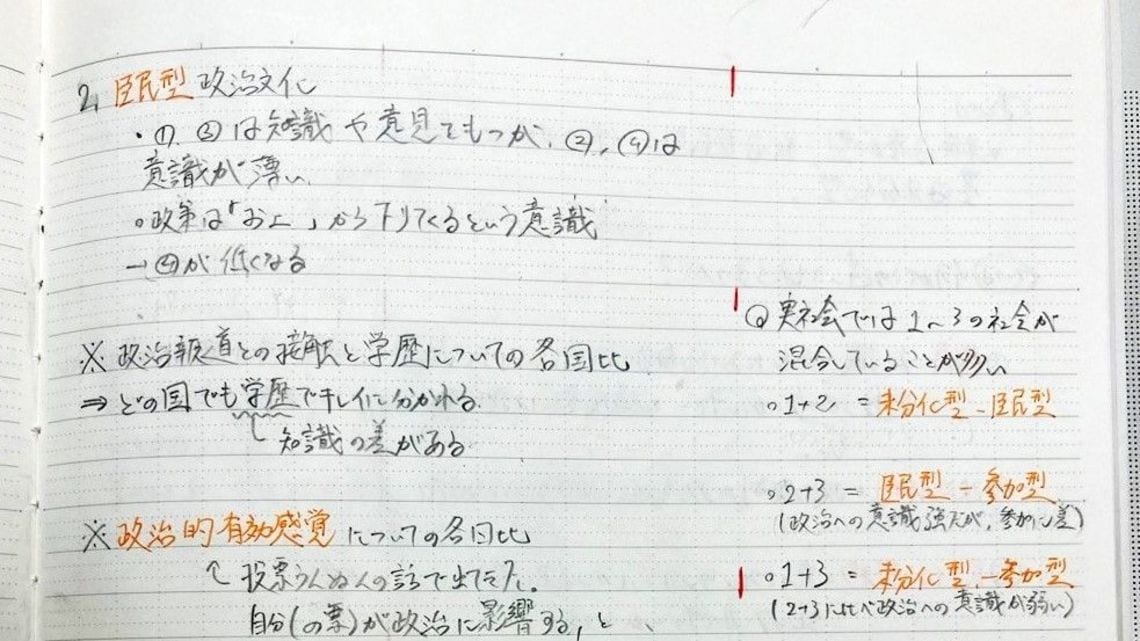 2. 臣民型 政治文化
・①, ③は知識や意見をもつが、②, ④は
意識が薄い
○政策は「お上」から下りてくるという意識
→④が低くなる
※ 政治報道との接触と学歴についての各国比
⇒ どの国でも学歴でキレイに分かれる.
知識の差がある
※政治的有効感覚 についての各国比
投票うんぬんの話で出てきた.
自分(の票)が政治に影響する, と
◎実社会では 1~3の社会が
混合していることが多い
○1+2 = 未分化型-臣民型
○2+3 = 臣民型-参加型
(政治への意識強だが, 参加に差)
○1+3 = 未分化型-参加型
(2+3に比べ政治への意識が弱い)